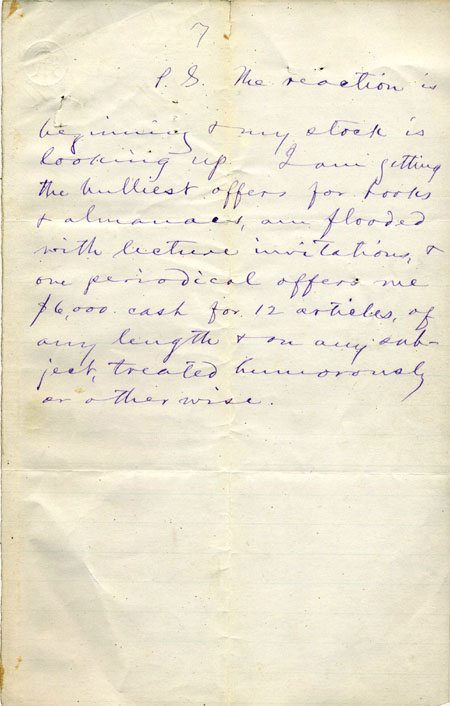 7
P.S. The reaction is
beginning & my stock is
looking up. I am getting
the bulliest offers for books
& almanacs, am flooded
with lecture invitations, &
one periodical offers me
$6,000 cash for 12 articles, of
any length & on any sub-
ject, treated humorously
or otherwise.